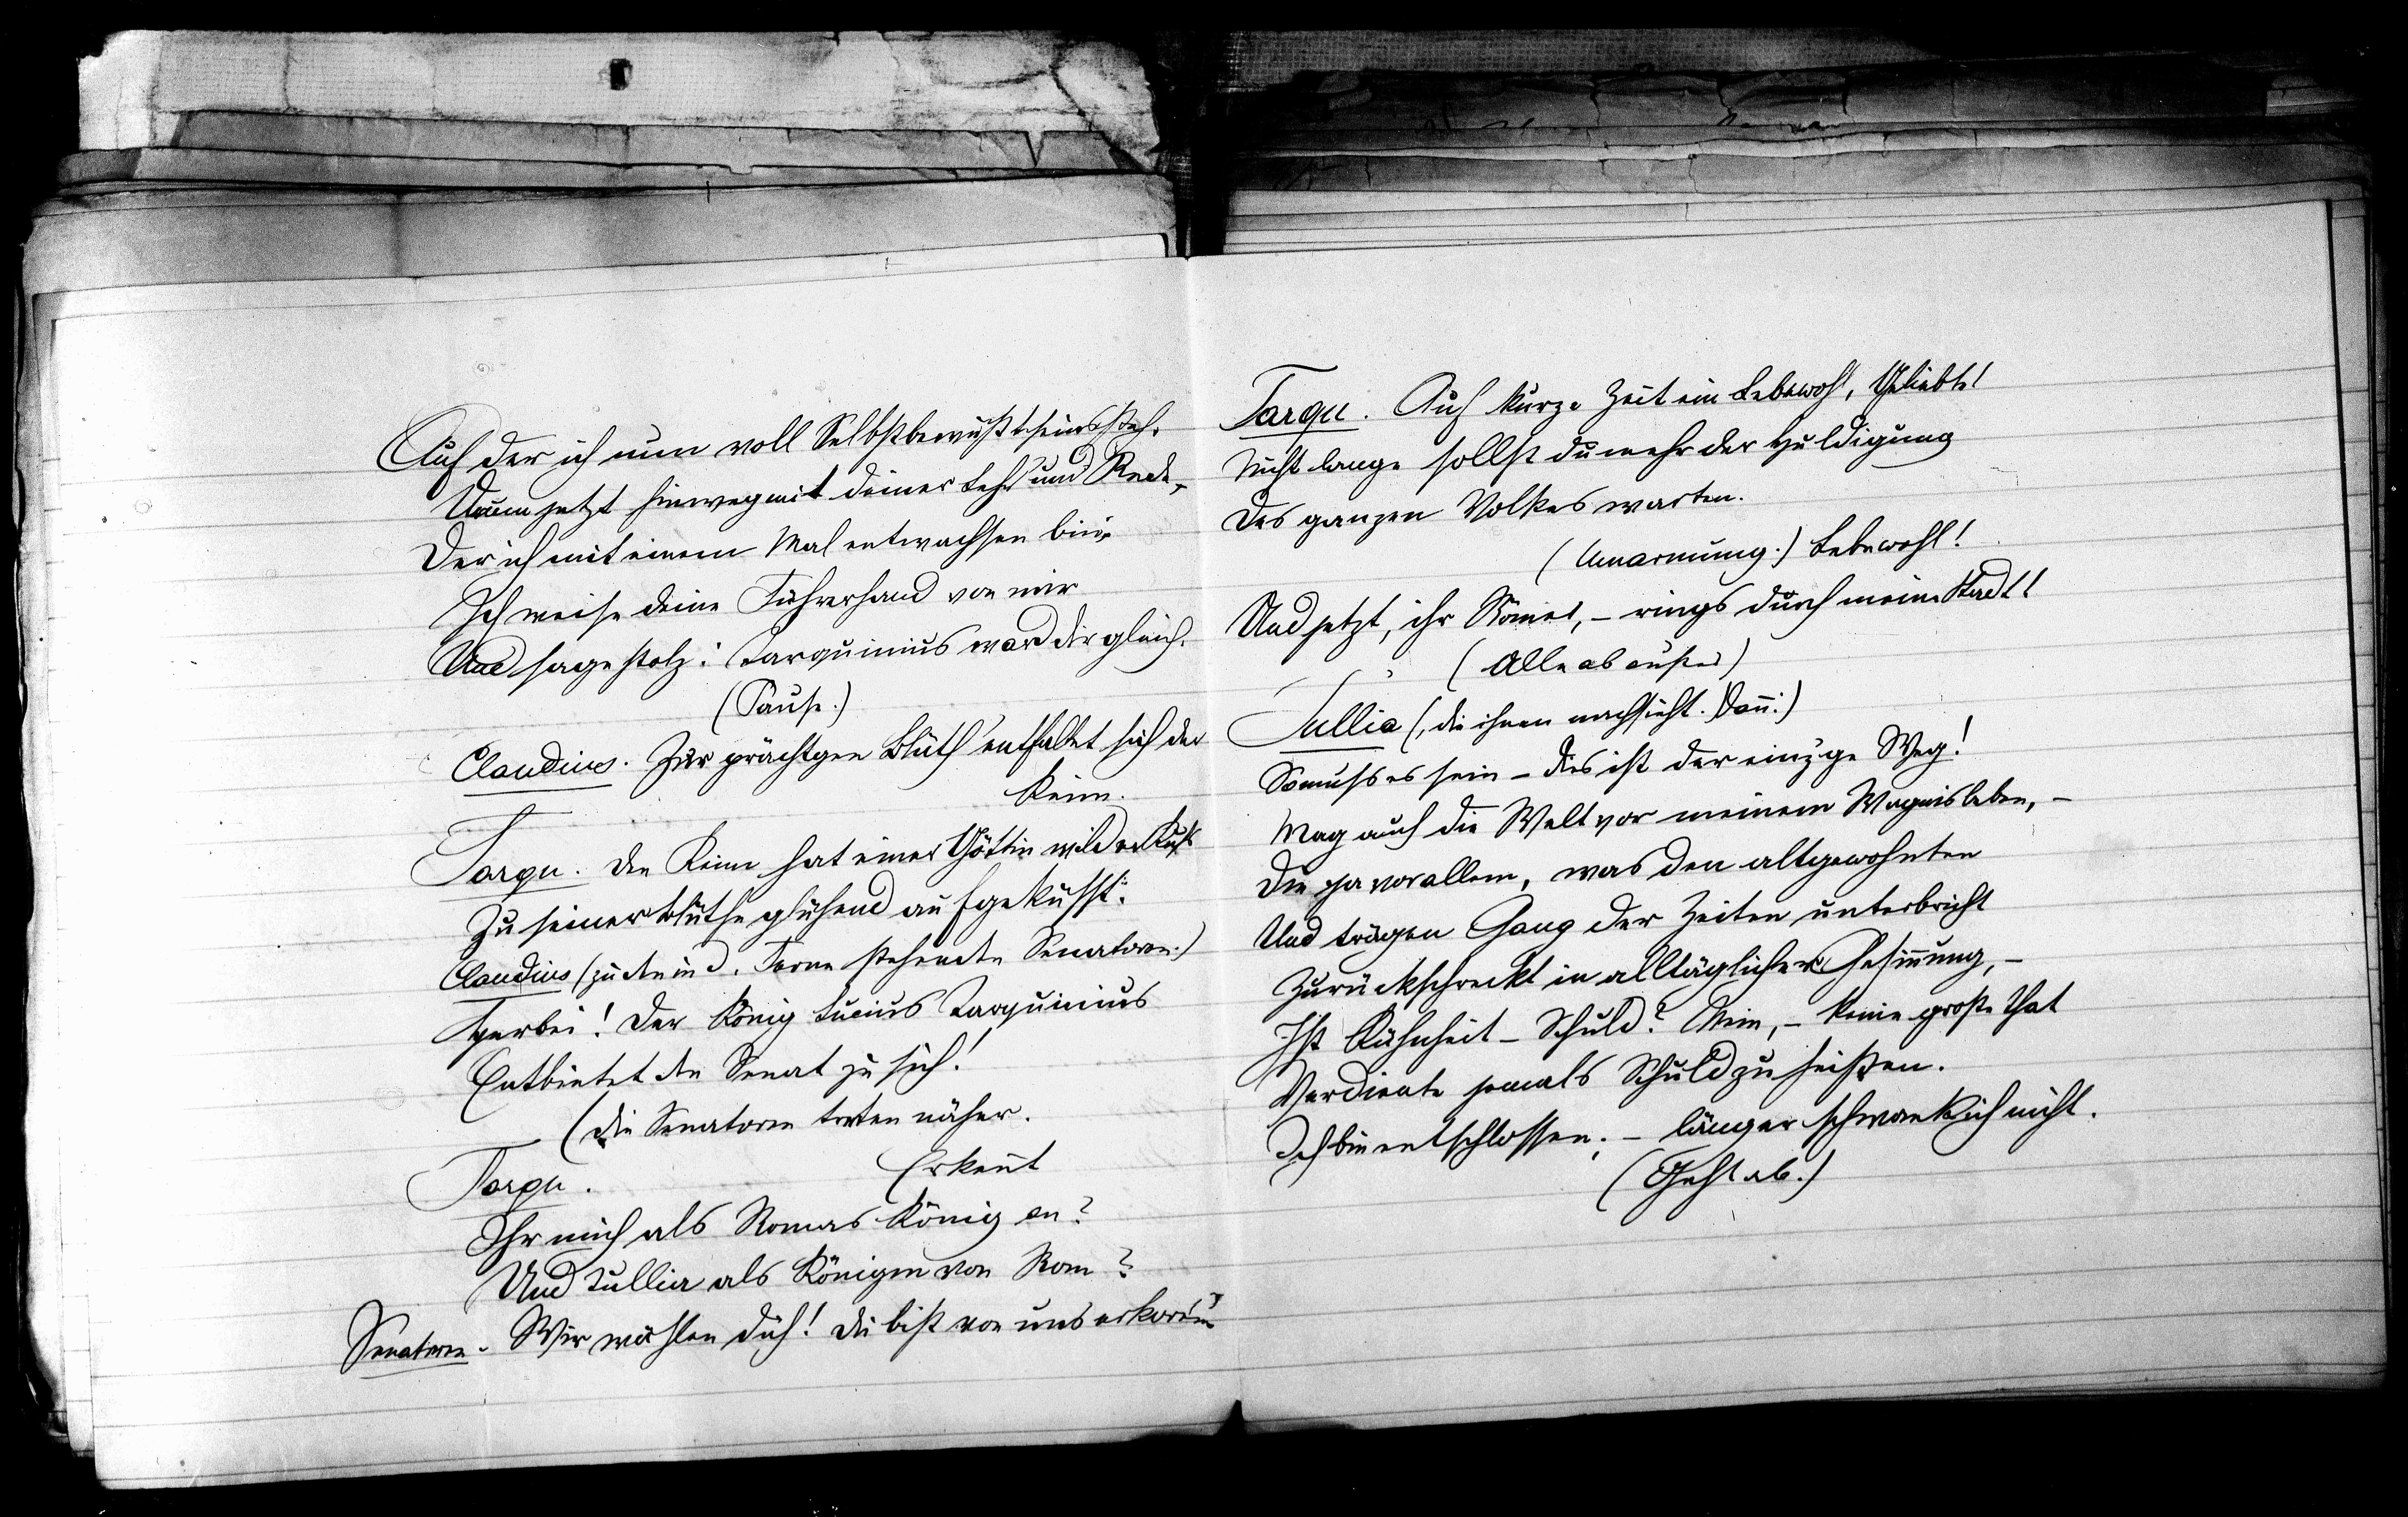 Auf der ich nun voll Selbstbewußtseins steh.
Drum jetzt hinweg mit deiner Lehr' und Rede,
Der ich mit einem Mal entwachsen bin.
Ich weise deine Führerhand von mir
Und sage stolz: Tarquinius ward dir gleich.
(Pause.)
Claudius. Zur prächtgen Blüth' entfaltet sich der
Keim.
Tarqu. Den Keim hat einer Göttin wilder Kuß
Zu seiner Blüthe glühend aufgeküsst.
Claudius (zu den in d. Ferne stehenden Senatoren:)
Herbei! Der König Lucius Tarquinius
Entbietet den Senat zu sich!
(Die Senatoren treten näher.
Tarqu. Erkennt
Ihr mich als Romas König an?
Und Tullia als Königin von Rom?
Senatoren. Wir wählen dich! Du bist von uns erkoren!
Tarqu. Auf kurze Zeit ein Lebewohl, Geliebte!
Nicht lange sollst du mehr der Huldigung
Des ganzen Volkes warten.
(Umarmung.) Lebewohl!
Und jetzt, ihr Römer, – rings durch meine Stadt!
(Alle ab außer)
Tullia (, die ihnen nachsieht. Dann:)
So muß es sein – dies ist der einz'ge Weg!
Mag auch die Welt vor meinem Wagnis beben, –
Die ja vor allem, was den altgewohnten
Und trägen Gang der Zeiten unterbricht
Zurückschreckt in alltäglicher Gesinnung, –
Ist Kühnheit – Schuld? Nein, – keine große That
Verdiente jemals Schuld zu heißen.
Ich bin entschlossen; – länger schwank ich nicht.
(Geht ab.)